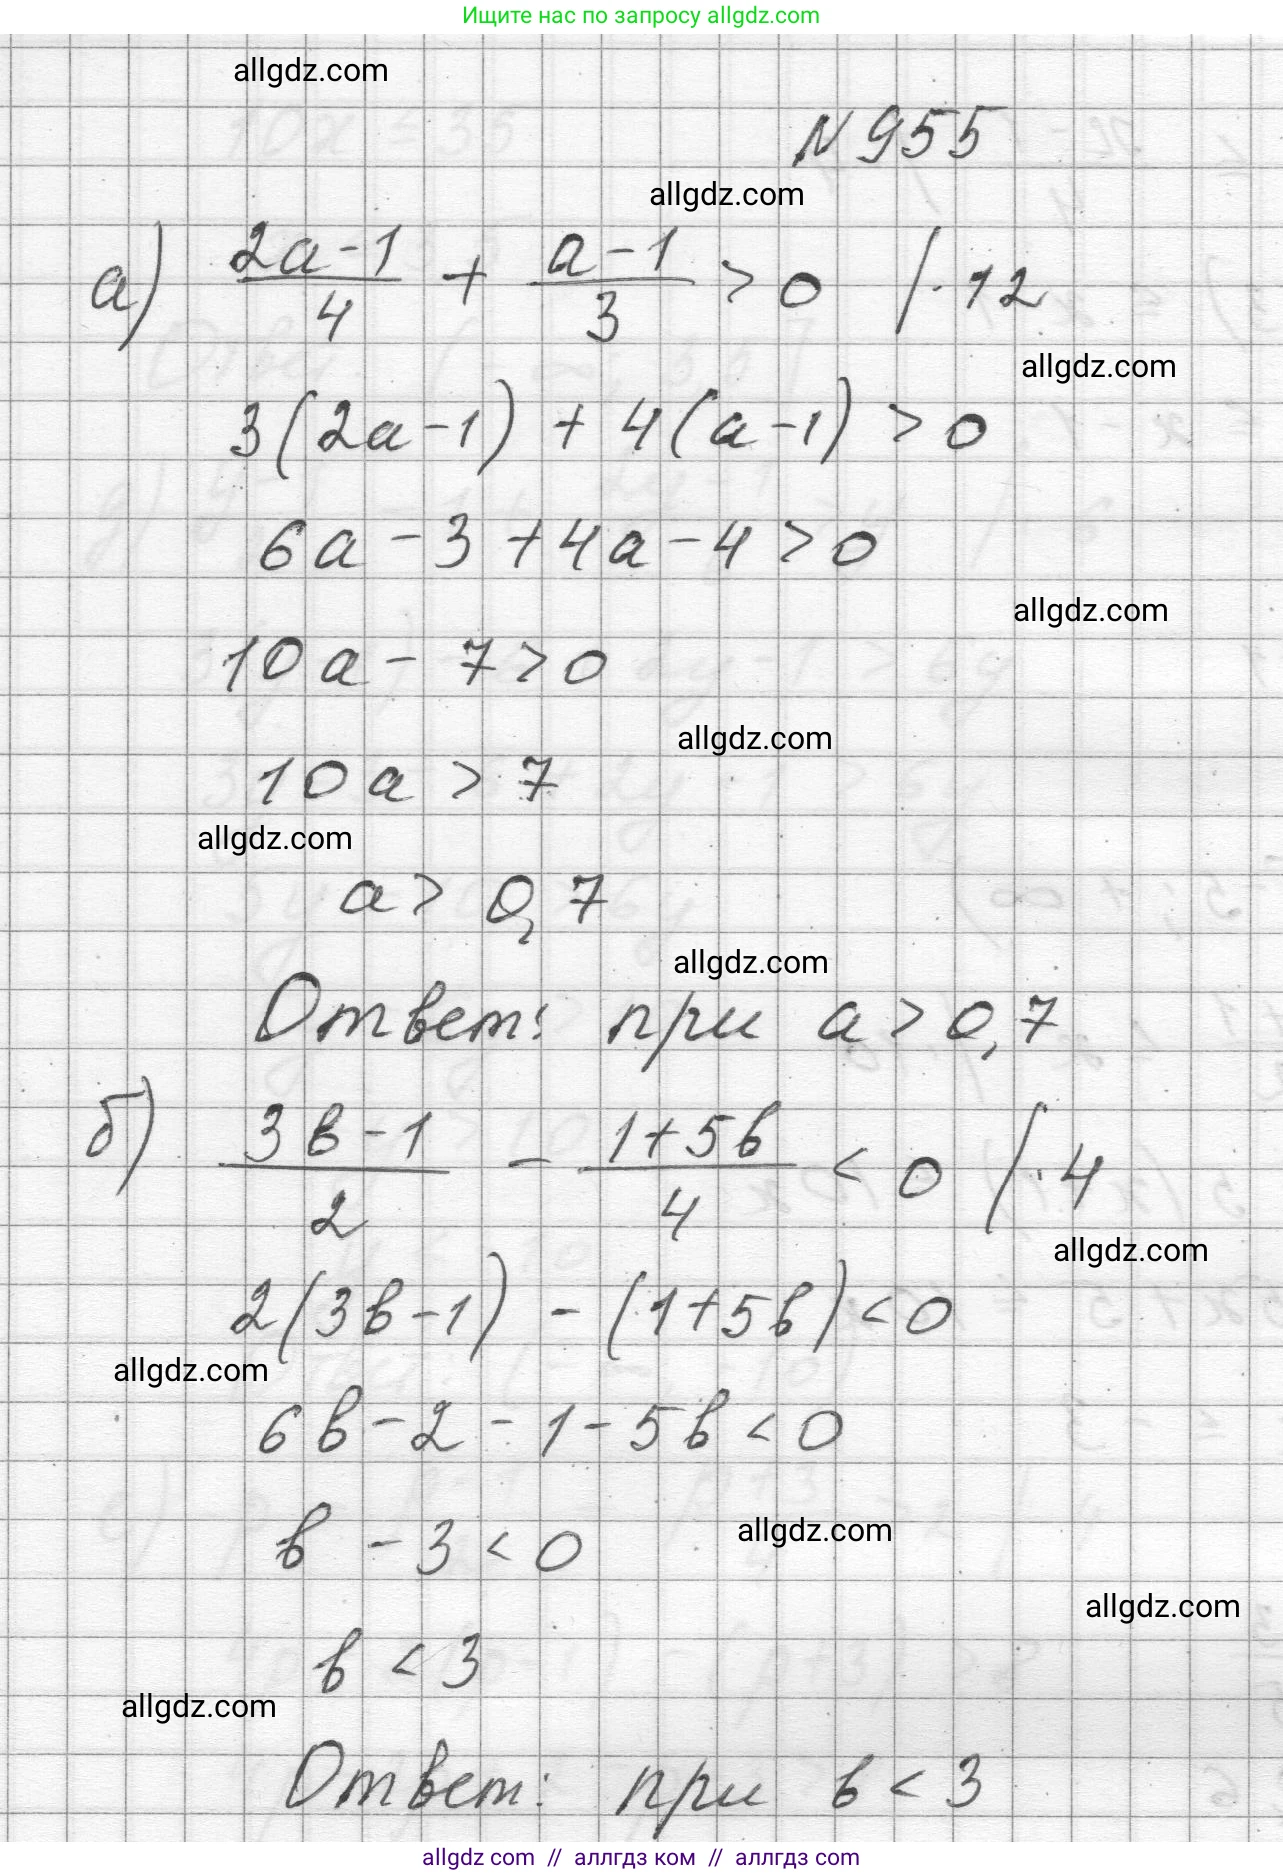 Ищите нас по запросу allgdz.com
allgdz.com
№ 955
allgdz.com
а) (2a-1)/4 + (a-1)/3 > 0 /·12
allgdz.com
3(2a-1) + 4(a-1) > 0
6a - 3 + 4a - 4 > 0
allgdz.com
10a - 7 > 0
allgdz.com
10a > 7
allgdz.com
a > 0,7
allgdz.com
Ответ: при a > 0,7
б) (3b-1)/2 - (1+5b)/4 < 0 /·4
allgdz.com
2(3b-1) - (1+5b) < 0
allgdz.com
6b - 2 - 1 - 5b < 0
allgdz.com
b - 3 < 0
allgdz.com
b < 3
allgdz.com
Ответ: при b < 3
allgdz com // аллгдз ком // allgdz.com